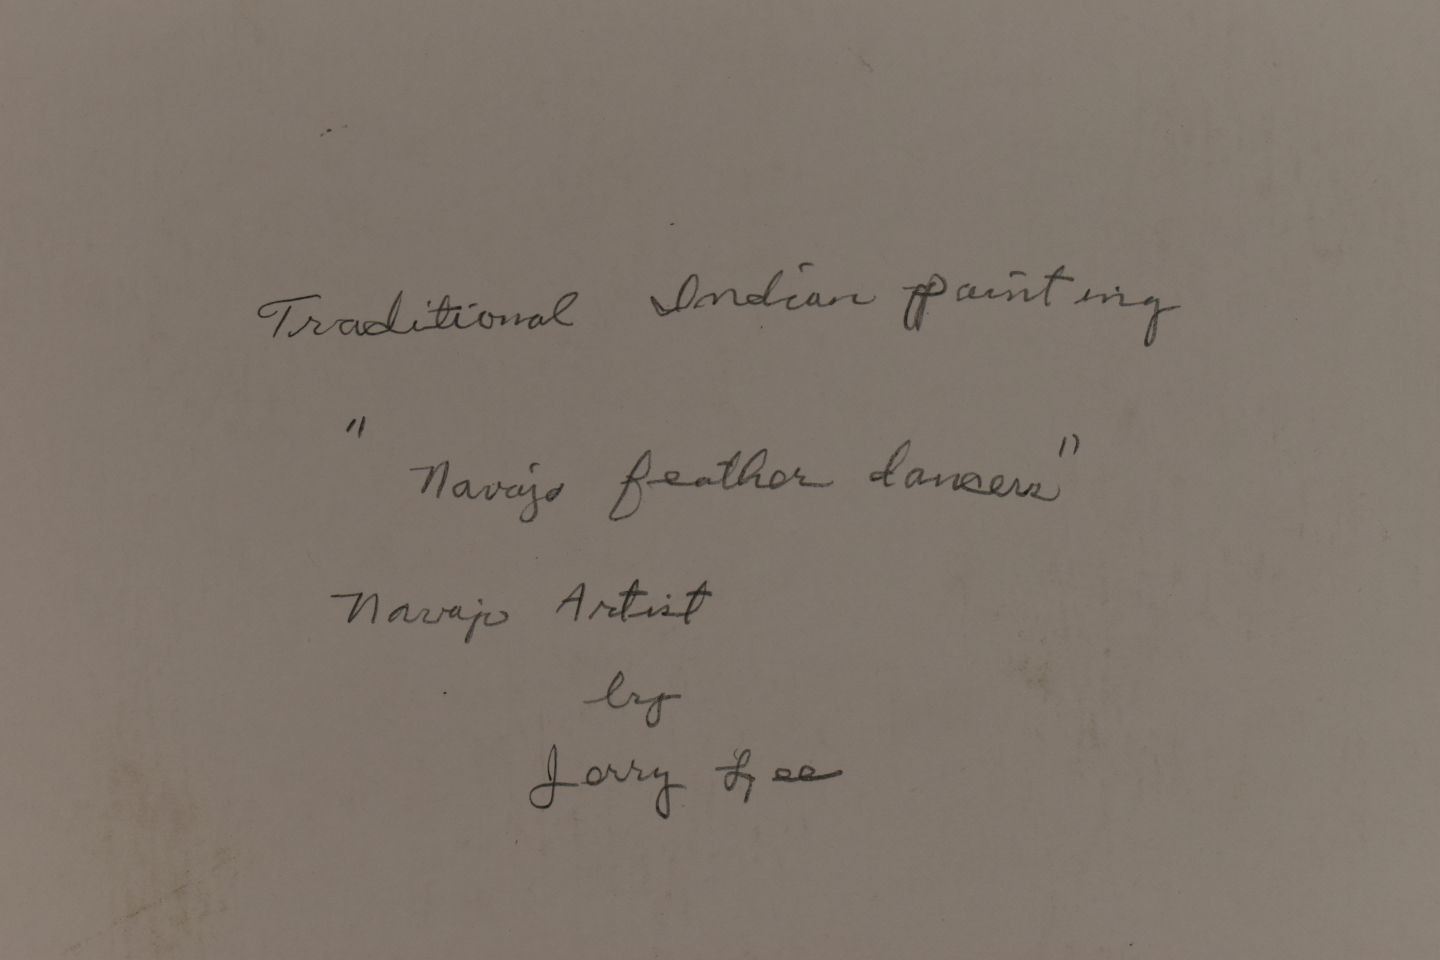 Traditional Indian painting
"Navajo feather dancers"
Navajo Artist
by
Jerry Lee